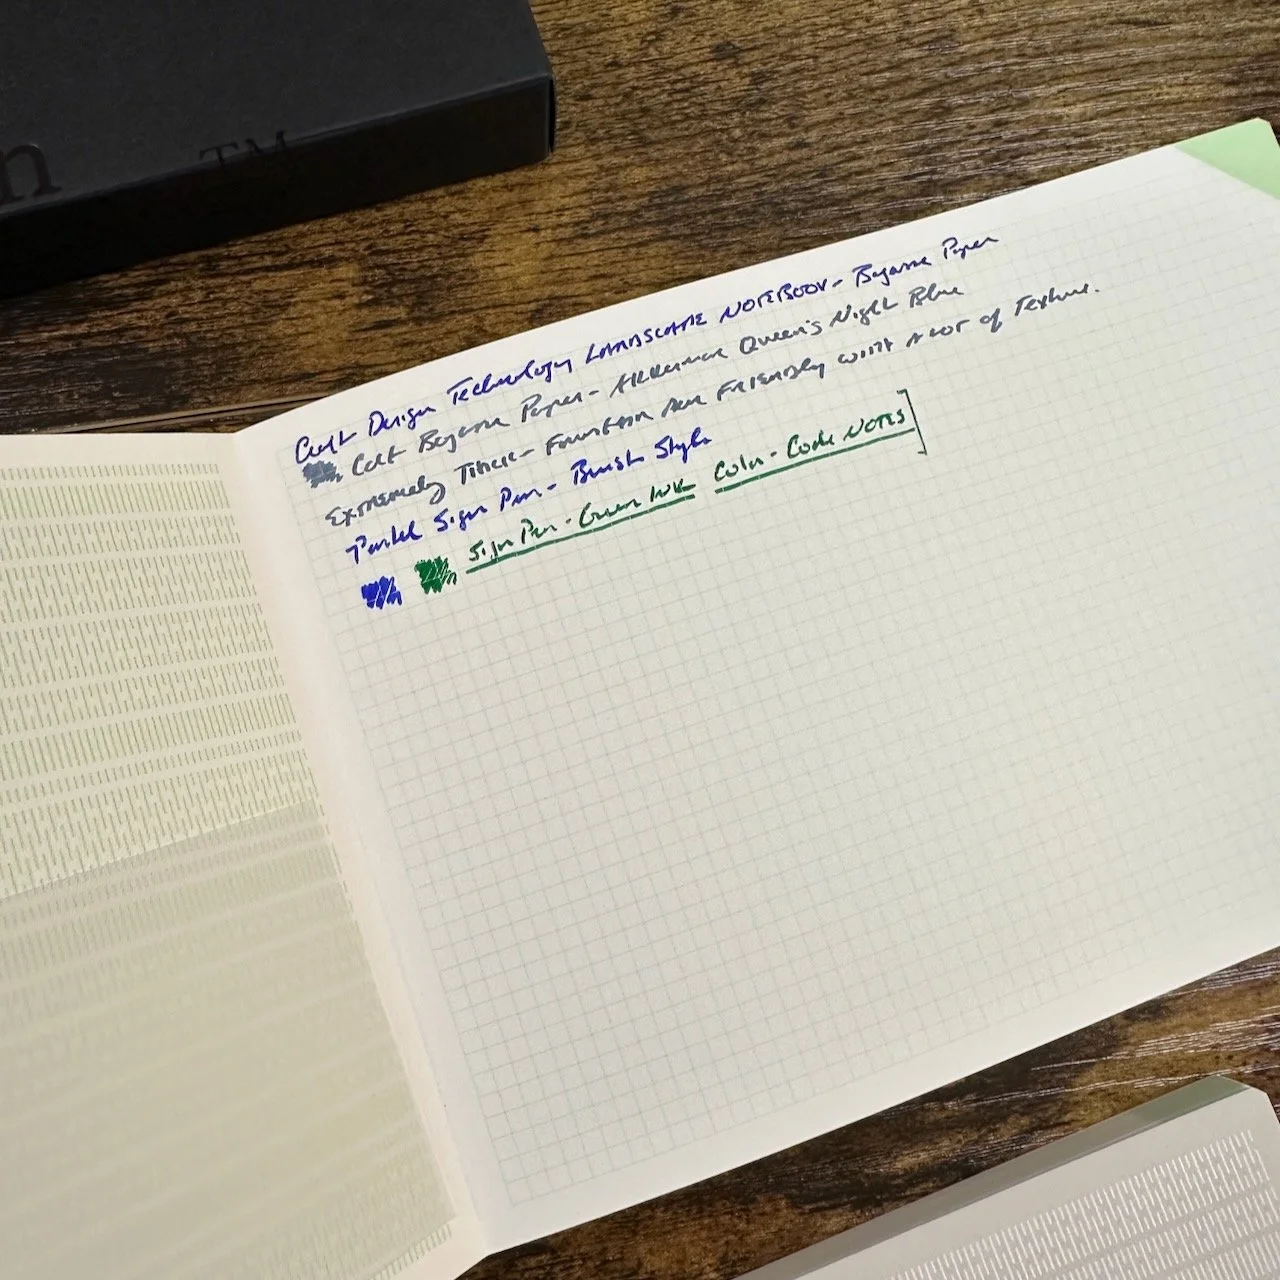 n TM
Cult Design Technology Landscape Notebook - Byasse Paper
Cult Byasse Paper - Akkerman Queen's Night Blue
Extremely Thick - Fountain Pen Friendly with a lot of Texture.
Pentel Sign Pen - Brush Style
Sign Pen - Green Ink Color-Code NOTES